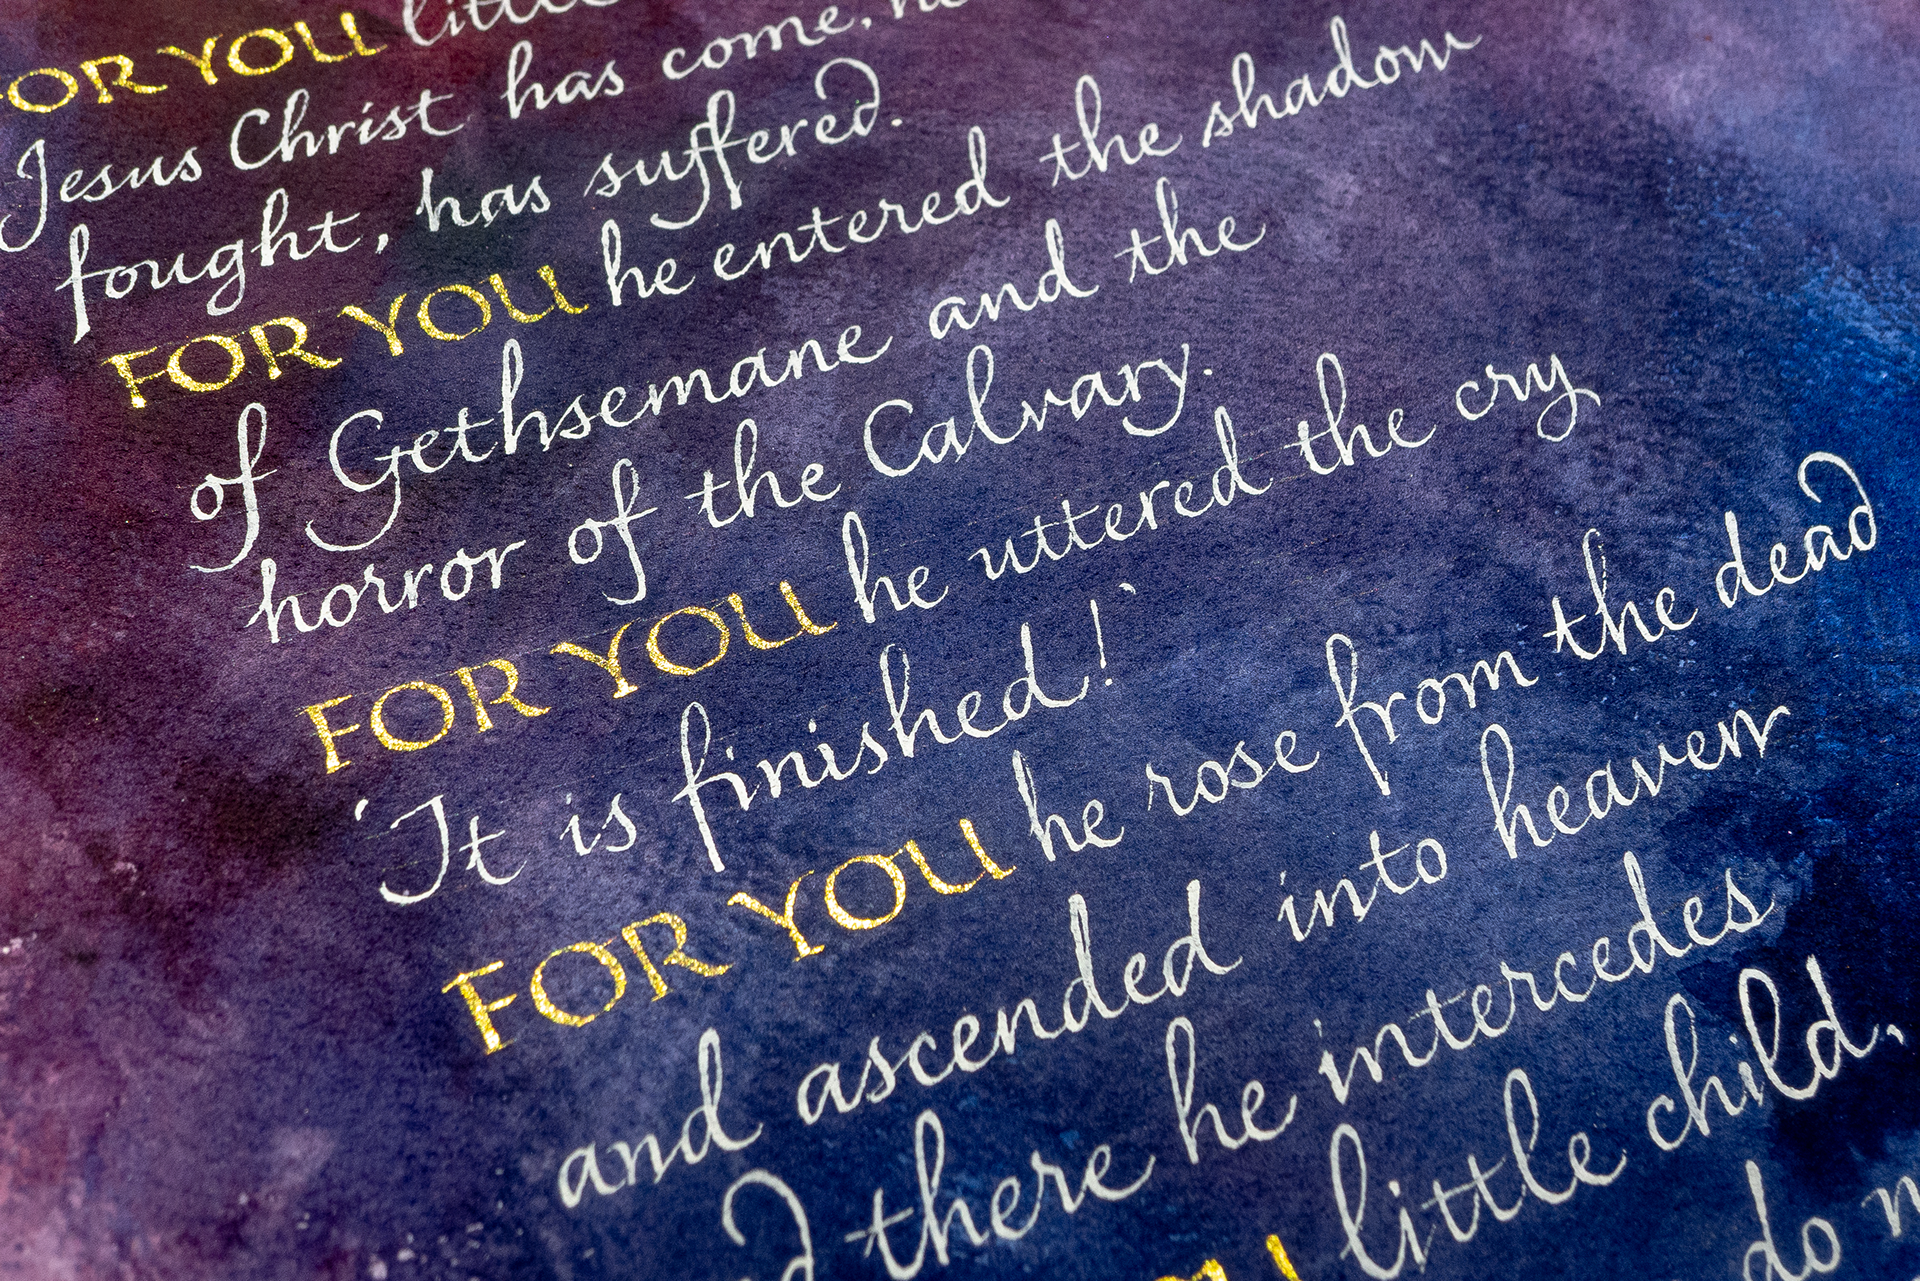 FOR YOU little
Jesus Christ has come, he
fought, has suffered.
FOR YOU he entered the shadow
of Gethsemane and the
horror of the Calvary.
FOR YOU he uttered the cry
'It is finished!'
FOR YOU he rose from the dead
and ascended into heaven
there he intercedes
YOU little child,
do